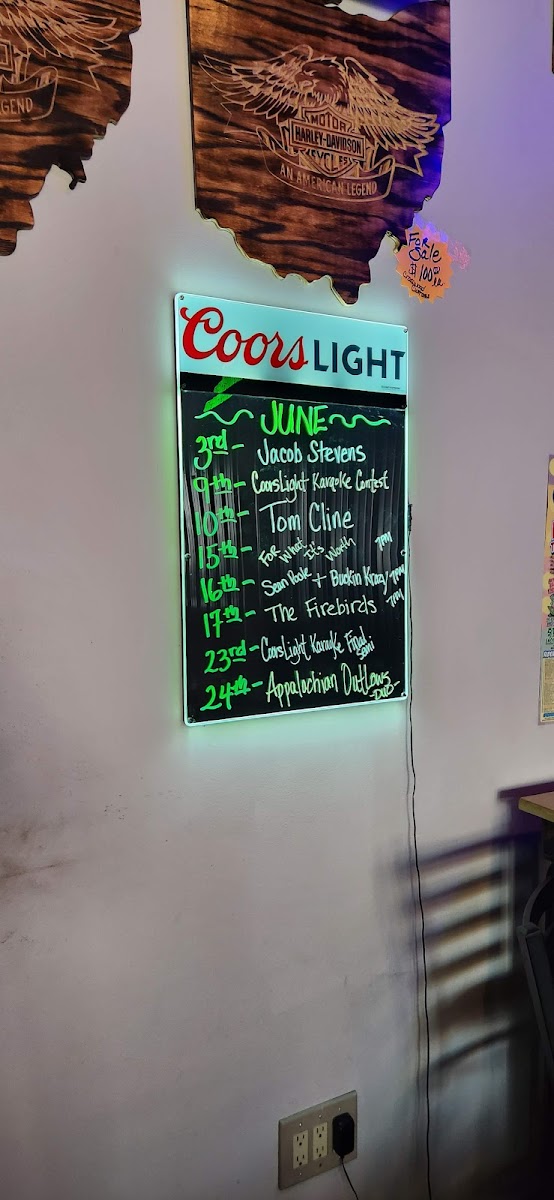 LEGEND
MOTOR
HARLEY-DAVIDSON
CYCLES
AN AMERICAN LEGEND
FOR
Sale
$100
Coors LIGHT
JUNE
3rd - Jacob Stevens
9th - CoorsLight Karaoke Contest
10th - Tom Cline
15th - For What It's Worth 7PM
16th - Sean Poole + Buckin Krazy 7PM
17th - The Firebirds 7PM
23rd - CoorsLight Karaoke Final
Semi
24th - Appalachian Outlaws
-DUO-